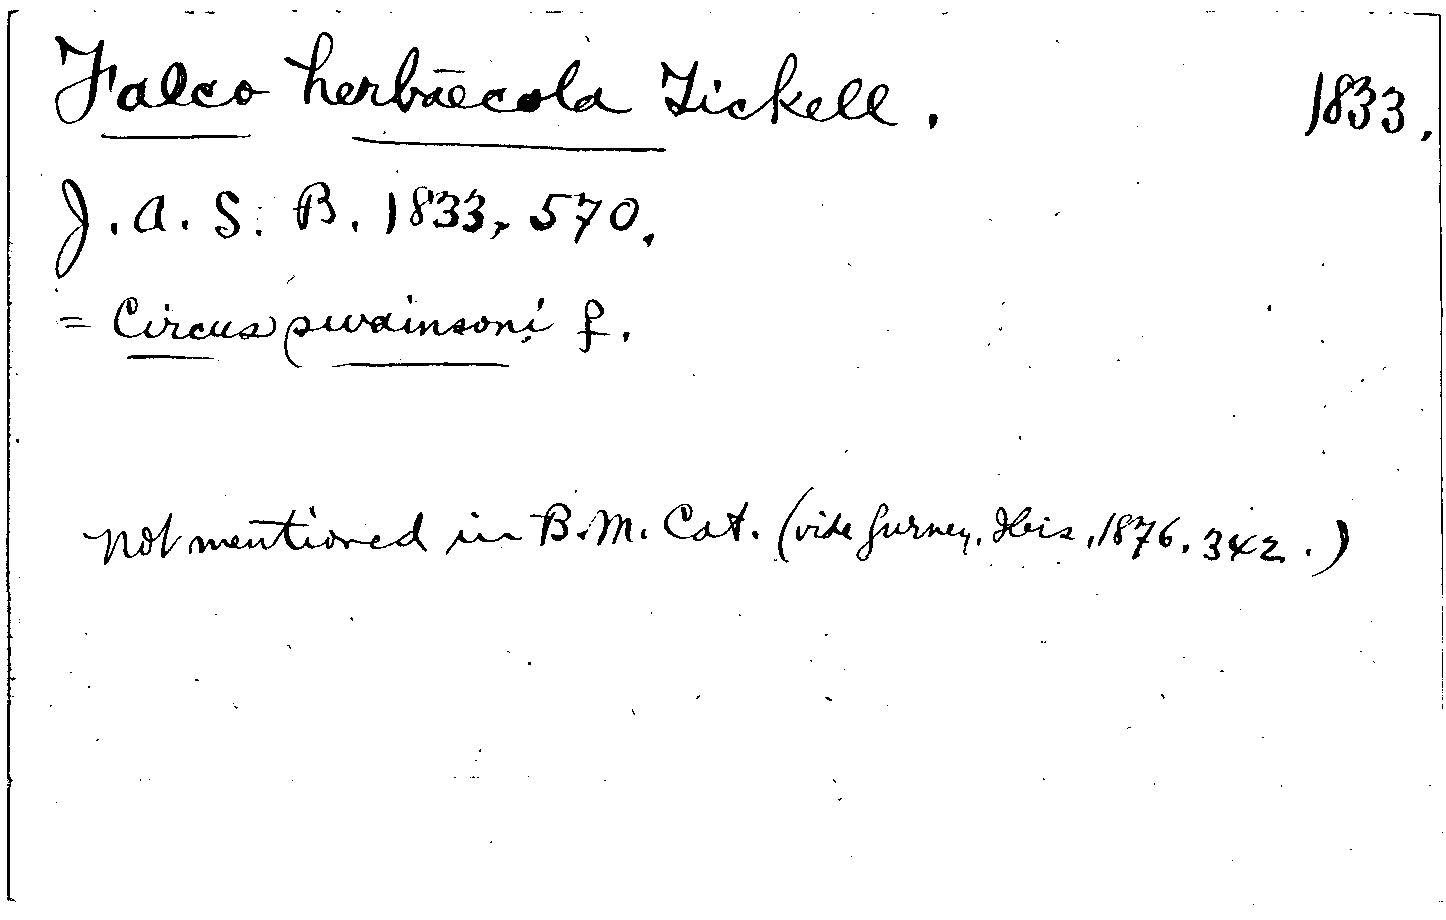 Falco herbaecola Tickell. 1833.
J. A. S. B. 1833, 570.
= Circus swainsoni ♀.
not mentioned in B.M. Cat. (vide Gurney, Ibis, 1876, 342.)